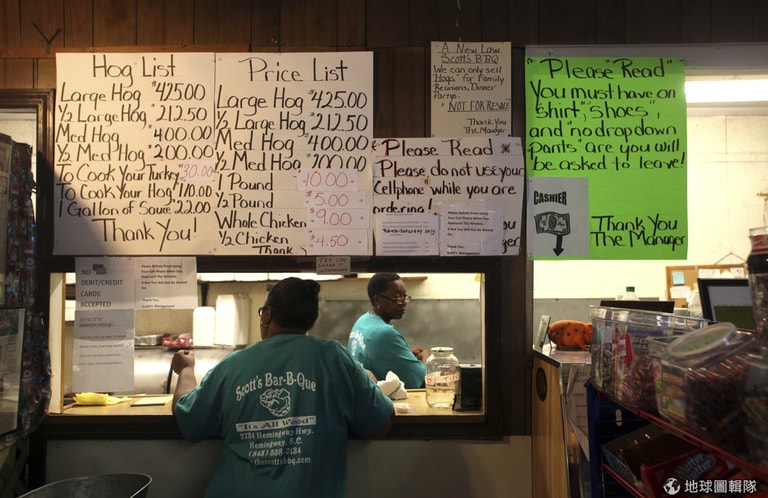 Hog List
Large Hog $425.00
1/2 Large Hog 212.50
Med Hog 400.00
1/2 Med Hog 200.00
To Cook Your Turkey 30.00
To Cook Your Hog 170.00
1 Gallon of Sauce 22.00
Thank You!
Price List
Large Hog $425.00
1/2 Large Hog $212.50
Med Hog 400.00
1/2 Med Hog 200.00
1 Pound 10.00
1/2 Pound $5.00
Whole Chicken $9.00
1/2 Chicken $4.50
Thank
A New Law
Scott's BBQ
We can only sell
"Hogs" for Family
Reunions, Dinner
Partys.
"NOT FOR RESALE"
Thank You
The Manager
"Please Read"
Please do not use your
Cellphone while you are
ordering!
you
"Please Read"
You must have on
shirt", shoes",
and "no drop down
pants" are you will
be asked to leave!
Thank You
The Manager
CASHIER
NO
DEBIT/CREDIT
CARDS
ACCEPTED
Please Refrain From Using
Your Cell Phone When
Thank You,
Scott's Management
Please Refrain From Using
Your Cell Phone When You
Thank You
Scott's Bar-B-Que
"It's All Wood"
2734 Hemingway Hwy.
Hemingway, S.C.
(843) 558-0134
thescottsbbq.com
地球圖輯隊